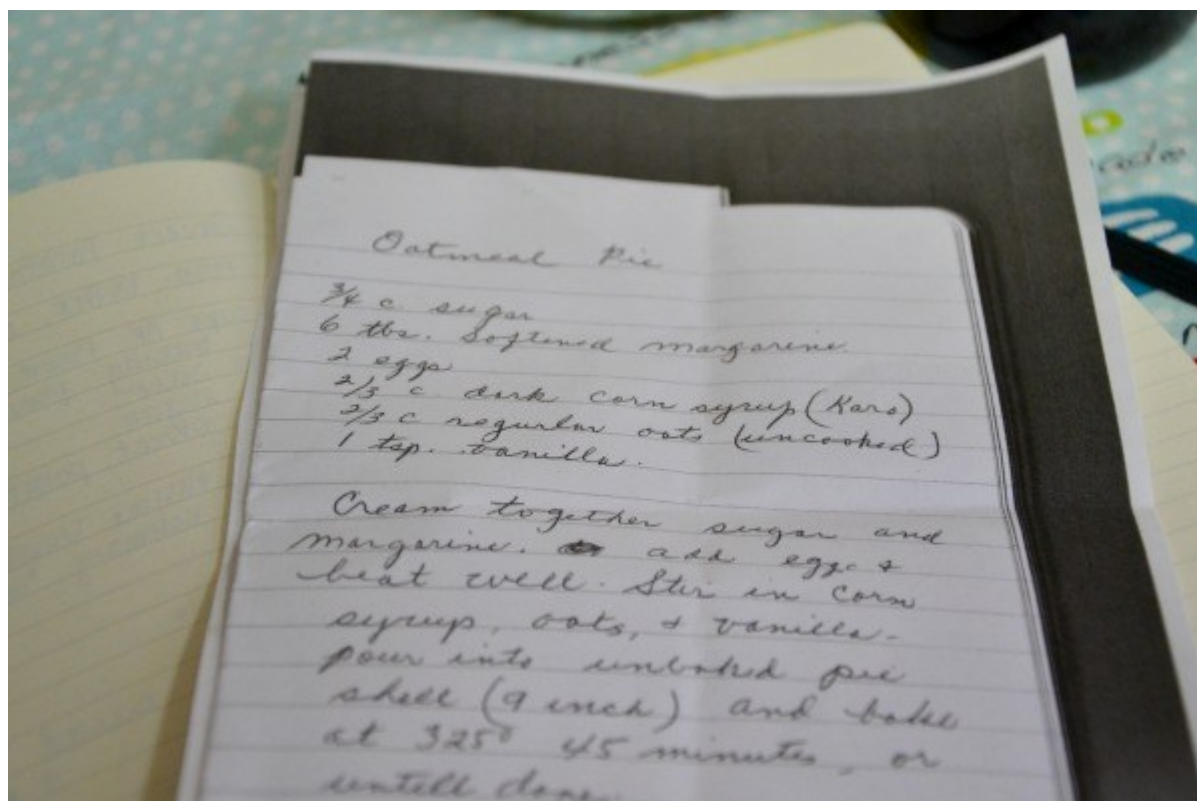 Oatmeal Pie
3/4 c. sugar
6 tbs. Softened margarine.
2 eggs
2/3 c. dark corn syrup (Karo)
2/3 c regurlar oats (uncooked)
1 tsp. vanilla.
Cream together sugar and
margarine. add eggs &
beat well. Stir in corn
syrup, oats, & vanilla.
pour into unbaked pie
shell (9 inch) and bake
at 325° 45 minutes, or
untill done.